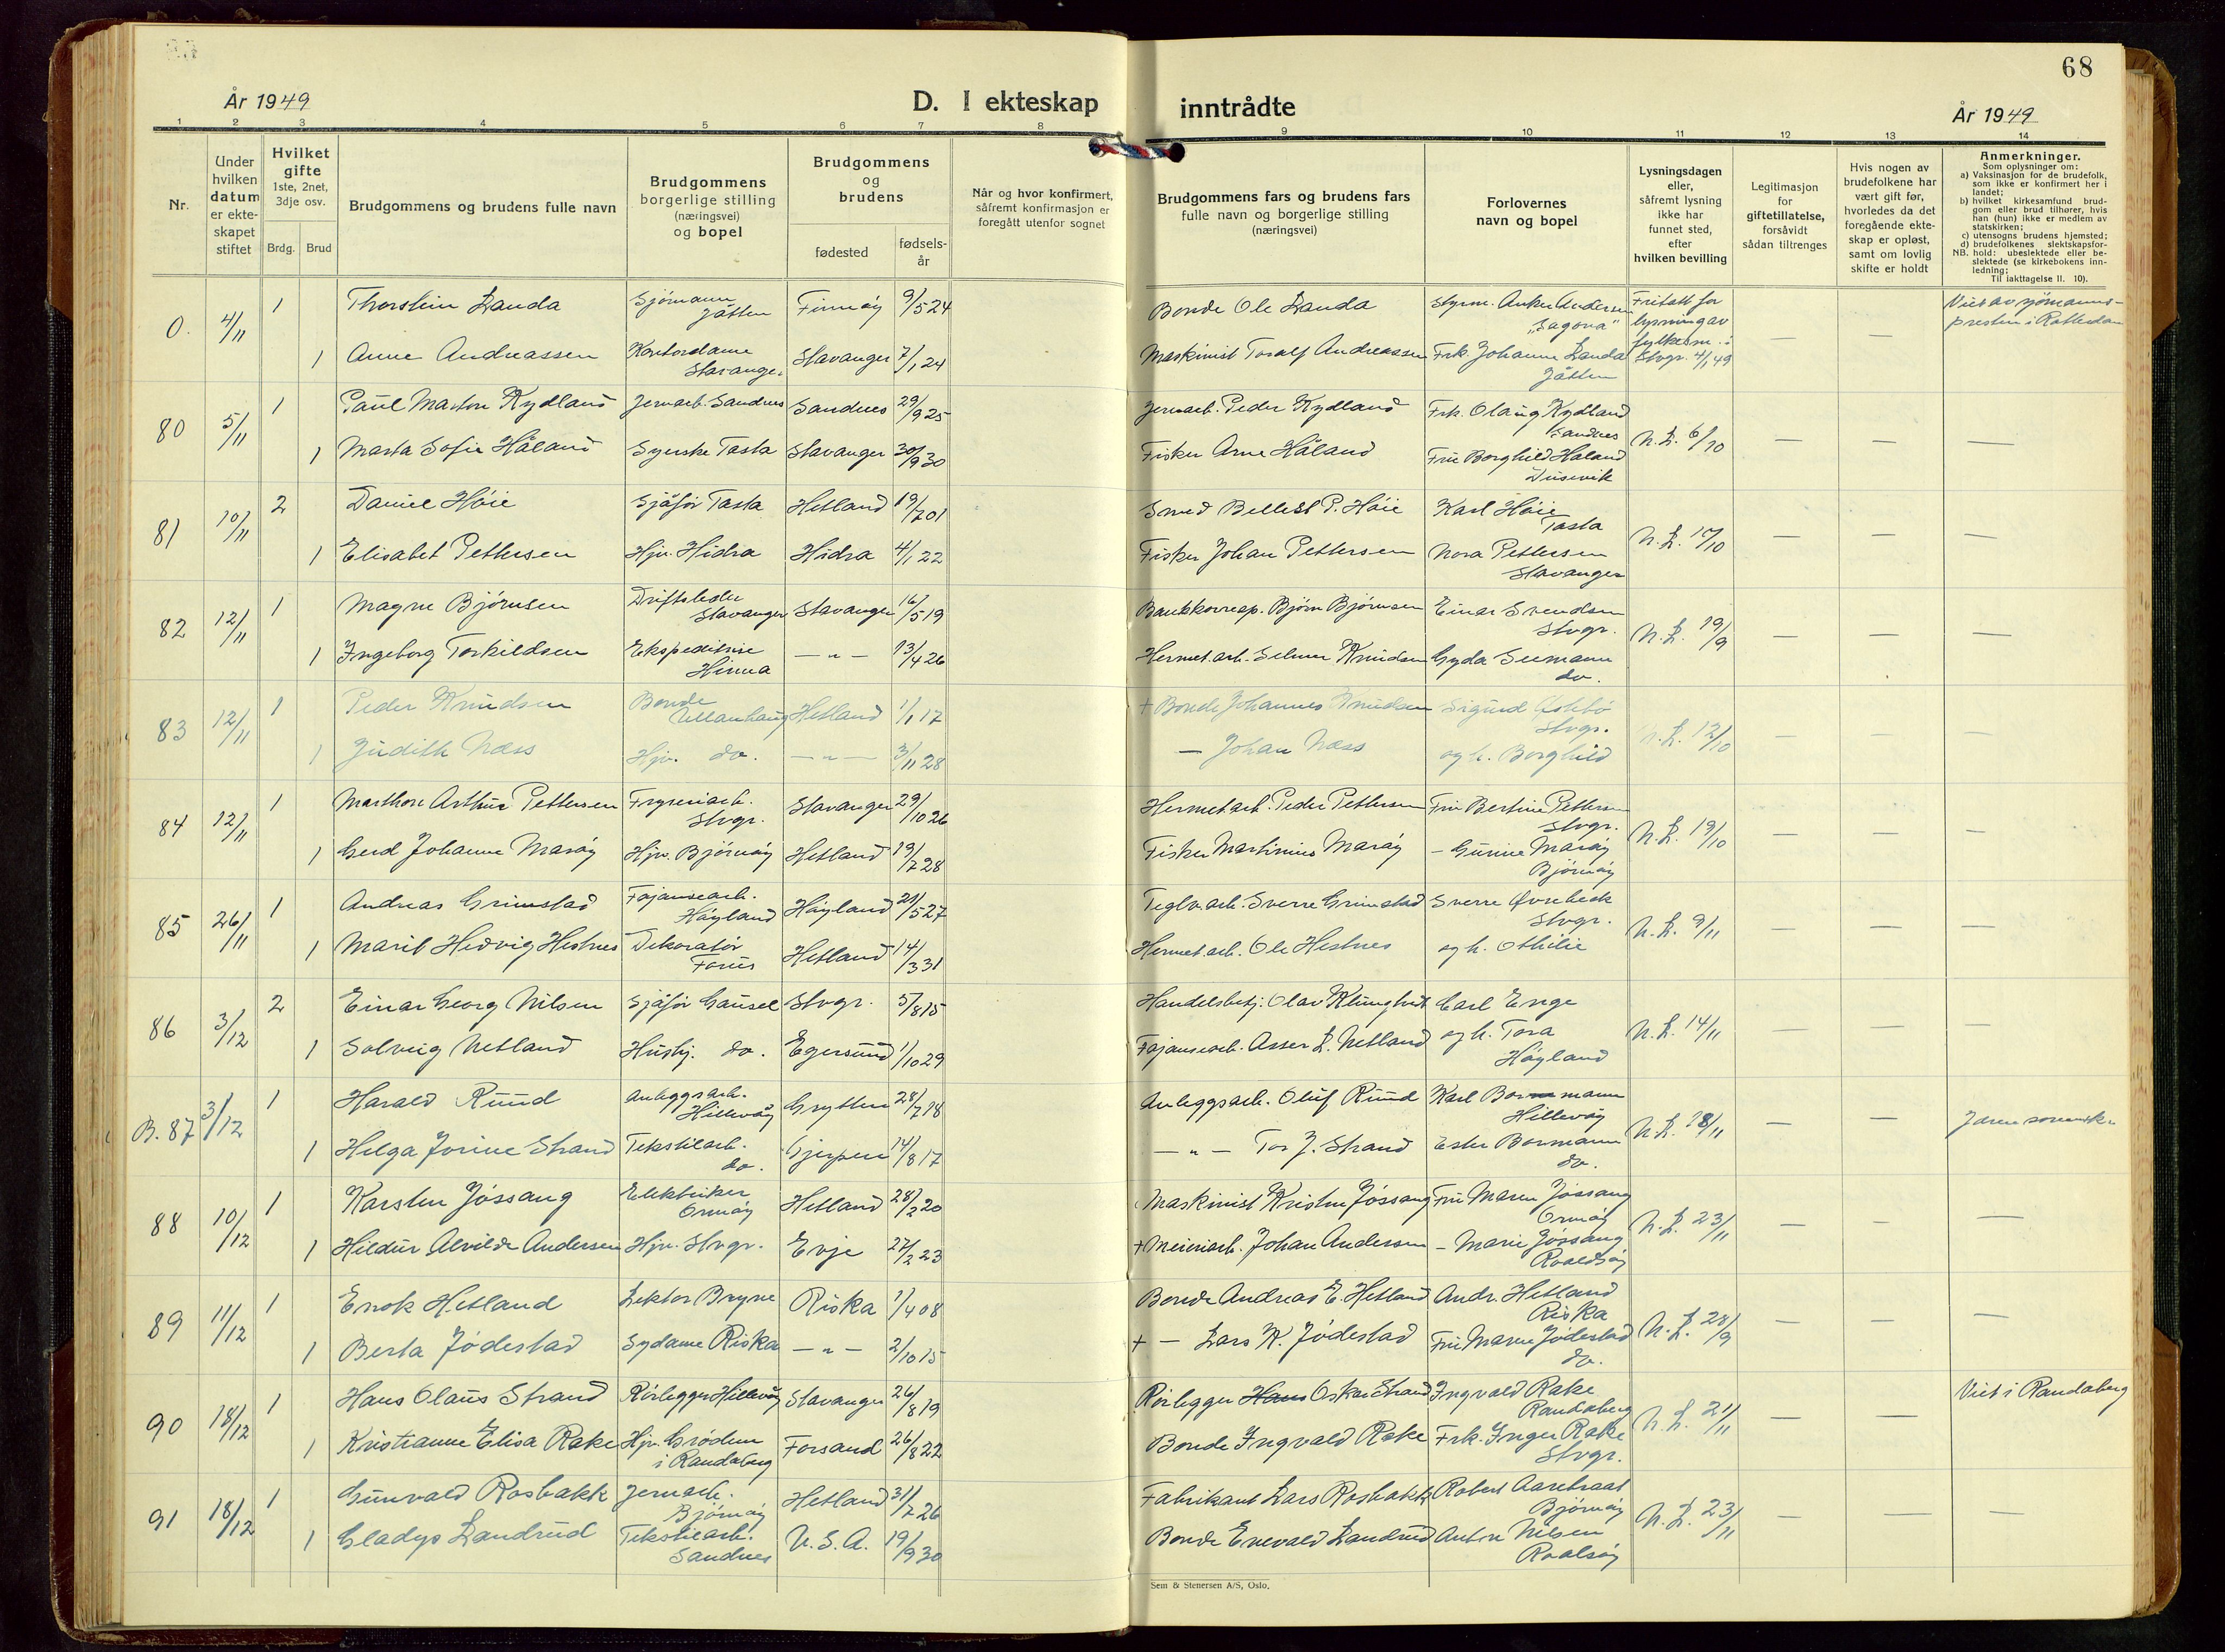 68
År 1949
D. I ekteskap inntrådte
År 1949
1 2 3 4 5 6 7 8 9 10 11 12 13 14
Nr.
Under hvilken datum er ekte-skapet stiftet
Hvilket gifte 1ste, 2net, 3dje osv.
Brdg. Brud
Brudgommens og brudens fulle navn
Brudgommens borgerlige stilling (næringsvei) og bopel
Brudgommens og brudens
fødested
fødsels-år
Når og hvor konfirmert, såfremt konfirmasjon er foregått utenfor sognet
Brudgommens fars og brudens fars fulle navn og borgerlige stilling (næringsvei)
Forlovernes navn og bopel
Lysningsdagen eller, såfremt lysning ikke har funnet sted, efter hvilken bevilling
Legitimasjon for giftetillatelse, forsåvidt sådan tiltrenges
Hvis nogen av brudefolkene har vært gift før, hvorledes da det foregående ekte-skap er opløst, samt om lovlig skifte er holdt
Anmerkninger.
Som oplysninger om:
a) Vaksinasjon for de brudefolk, som ikke er konfirmert her i landet;
b) hvilket kirkesamfund brud-gom eller brud tilhører, hvis han (hun) ikke er medlem av statskirken;
c) utensogns brudens hjemsted;
d) brudefolkenes slektskapsfor-hold: ubeslektede eller be-slektede (se kirkebokens inn-ledning;
NB. Til iakttagelse II. 10).
0. 4/11 1 Thorstein Landa Sjömann Jåtten Finnöy 9/5 24 Bonde Ole Landa Styrm. Anker Andersen "Sagona" Fritatt for lysning av fylkesm. i Stvgr. 4/1 49 — — Viet av sjömanns-presten i Rotterdam
1 Anne Andreassen Kontordame Stavanger Stavanger 7/1 24 Maskinist Toralf Andreassen Frk. Johanne Landa Jåtten
80 5/11 1 Paul Marton Kydland Jernarb. Sandnes Sandnes 29/9 25 Jernarb. Peder Kydland Frk. Olaug Kydland Sandnes N.L. 6/10 — — —
1 Marta Sofie Håland Syerske Tasta Stavanger 30/9 30 Fisker Arne Håland Fru Borghild Håland Dusevik
81 10/11 2 Daniel Höie Sjåför Tasta Hetland 19/7 01 Smed Bellest P. Höie Karl Höie Tasta N.L. 10/10 — — —
1 Elisabet Pettersen Hjv. Hidra Hidra 4/1 22 Fisker Johan Pettersen Nora Pettersen Stavanger
82 12/11 1 Magne Björnsen Driftsleder Stavanger Stavanger 16/5 19 Bankkorresp. Björn Björnsen Einar Svendsen Stvgr. N.L. 19/9 — — —
1 Ingeborg Torkildsen Ekspeditrise Hinna — " — 13/4 26 Hermet.arb. Selmer Knudsen Gyda Seemann do.
83 12/11 1 Peder Knudsen Bonde Ullanhaug Hetland 1/1 17 + Bonde Johannes Knudsen Sigurd Östbö Stvgr. N.L. 12/10 — — —
1 Judith Næss Hjv. do. — " — 3/11 28 — Johan Næss og h. Borghild
84 12/11 1 Marthon Arthur Pettersen Fryseriarb. Stvgr. Stavanger 29/10 26 Hermet.arb. Peder Pettersen Fru Bertine Pettersen Stvgr. N.L. 19/10 — — —
1 Gerd Johanne Maröy Hjv. Björnöy Hetland 19/7 28 Fisker Martinius Maröy — Gurine Maröy Björnöy
85 26/11 1 Andreas Grimstad Fajansearb. Höyland Höyland 21/5 27 Teglv.arb. Sverre Grimstad Sverre Övrebeck Stvgr. N.L. 9/11 — — —
1 Marit Hedvig Hestnes Dekoratör Forus Hetland 14/3 31 Hermet.arb. Ole Hestnes og h. Othilie
86 3/12 2 Einar Georg Nilsen Sjåför Gausel Stvgr. 5/8 15 Handelsbetj. Olav Klungtveit Carl Enge N.L. 14/11 — — —
1 Solveig Netland Hushj. do. Egersund 1/10 29 Fajansearb. Asser L. Netland og h. Tora Höyland
B. 87 3/12 1 Harald Ruud Anleggsarb. Hillevåg Grytten 28/7 18 Anleggsarb. Oluf Ruud Karl Bormann Hillevåg N.L. 18/11 — —
1 Helga Jorine Strand Tekstilarb. do. Gjerpen 14/8 17 — " — Tor J. Strand Ester Bormann do.
88 10/12 1 Karsten Jössang Elektriker Ormöy Hetland 28/2 20 Maskinist Kristen Jössang Fru Maren Jössang Ormöy N.L. 23/11 — — —
1 Hildur Alvilde Andersen Hjv. Stvgr. Evje 27/2 23 + Meieriarb. Johan Andersen — Marie Jössang Roaldsöy
89 11/12 1 Enok Hetland Lektor Bryne Riska 1/4 08 Bonde Andreas E. Hetland Andr. Hetland Riska N.L. 28/9 — — —
1 Berta Jödestad Sydame Riska — " — 2/10 15 + — Lars K. Jödestad Fru Maren Jödestad do.
90 18/12 1 Hans Olaus Strand Rörlegger Hillevåg Stavanger 26/8 19 Rörlegger Hans Oskar Strand Ingvald Rake Randaberg N.L. 21/11 — — Viet i Randaberg
1 Kristianne Elisa Rake Hjv. Grödem i Randaberg Forsand 26/8 22 Bonde Ingvald Rake Frk. Inger Rake Stvgr.
91 18/12 1 Gunvald Rosbakk Jernarb. Björnöy Hetland 31/7 26 Fabrikant Lars Rosbakk Robert Aarebraat Björnöy N.L. 23/11 — — —
1 Gladys Landrud Tekstilarb. Sandnes U.S.A. 19/9 30 Bonde Enevald Landrud Anton Nilsen Roalsöy
Sem & Stenersen A/S, Oslo.